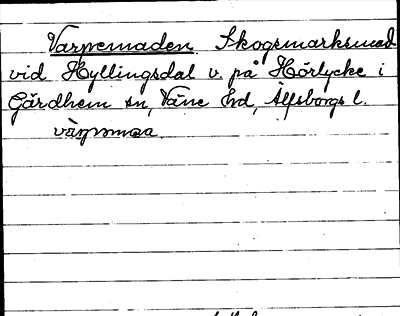 Varpemaden Skogsmarksmad
vid Hyllingsdal v. på Hörlycke i
Gärdhem sn, Väne hd, Älfsborgs l.